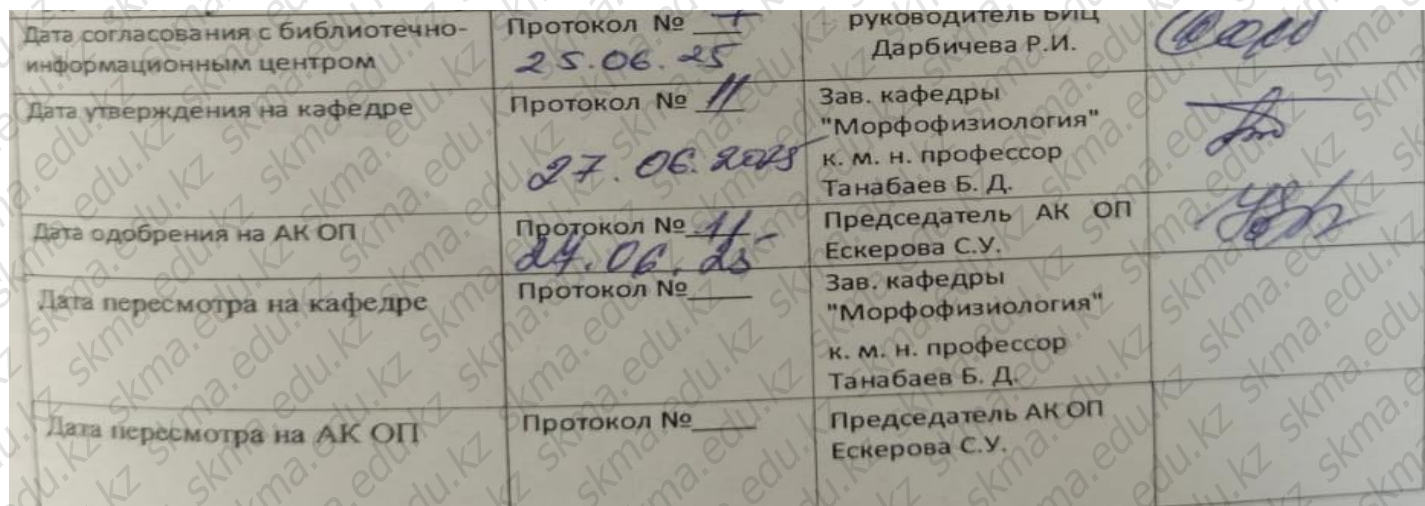 Дата согласования с библиотечно-
информационным центром
Протокол № 7
25.06.25
руководитель БИЦ
Дарбичева Р.И.
Дата утверждения на кафедре
Протокол № 11
27.06.2025
Зав. кафедры
"Морфофизиология"
к. м. н. профессор
Танабаев Б. Д.
Дата одобрения на АК ОП
Протокол № 11
27.06.25
Председатель АК ОП
Ескерова С.У.
Дата пересмотра на кафедре
Протокол №____
Зав. кафедры
"Морфофизиология"
к. м. н. профессор
Танабаев Б. Д.
Дата пересмотра на АК ОП
Протокол №____
Председатель АК ОП
Ескерова С.У.
skma.edu.kz